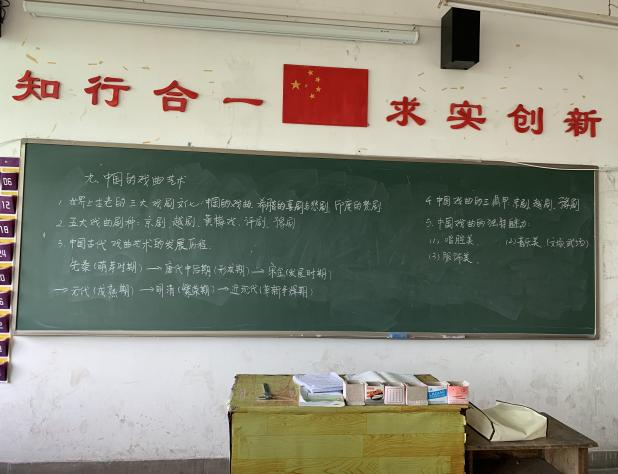 知行合一 求实创新
九、中国的戏曲艺术
1. 世界上古老的三大戏剧文化：中国的戏曲、希腊的喜剧与悲剧、印度的梵剧
2. 五大戏曲剧种：京剧、越剧、黄梅戏、评剧、豫剧
3. 中国古代戏曲艺术的发展历程.
先秦(萌芽时期) → 唐代中后期(形成期) → 宋金(发展时期)
→ 元代(成熟期) → 明清(繁荣期) → 近现代(革新丰辉期)
4. 中国戏曲的三鼎甲: 京剧、越剧、豫剧
5. 中国戏曲的独特魅力:
(1) 唱腔美. (2) 音乐美
(3) 服饰美.
06
12
18
24